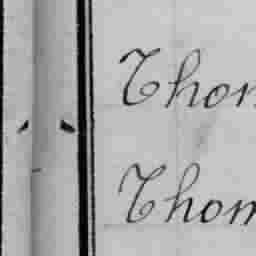 Thon
Thom